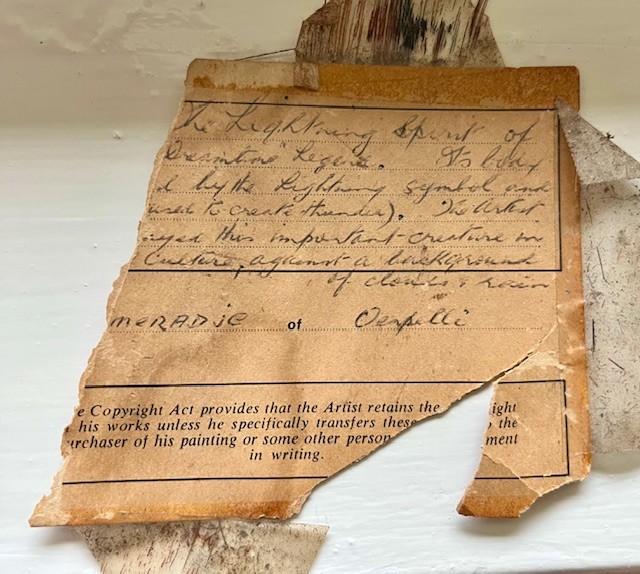 he Lightning Spirit of
Dreamtime Legend. Its body
d by the Lightning symbol and
used to create thunder). The Artist
ayed this important creature in
Culture, against a background
of clouds & rain
MERADJE of Oenpelli
e Copyright Act provides that the Artist retains the ight
his works unless he specifically transfers these o the
urchaser of his painting or some other person ment
in writing.